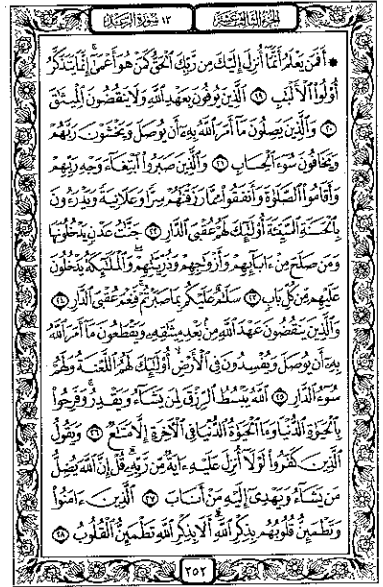 الجزء الثالث عشر ١٣ سورة الرعد
۞ أَفَمَن يَعْلَمُ أَنَّمَآ أُنزِلَ إِلَيْكَ مِن رَّبِّكَ ٱلْحَقُّ كَمَنْ هُوَ أَعْمَىٰٓ ۚ إِنَّمَا يَتَذَكَّرُ
أُو۟لُوا۟ ٱلْأَلْبَٰبِ ١٩ ٱلَّذِينَ يُوفُونَ بِعَهْدِ ٱللَّهِ وَلَا يَنقُضُونَ ٱلْمِيثَٰقَ
٢٠ وَٱلَّذِينَ يَصِلُونَ مَآ أَمَرَ ٱللَّهُ بِهِۦٓ أَن يُوصَلَ وَيَخْشَوْنَ رَبَّهُمْ
وَيَخَافُونَ سُوٓءَ ٱلْحِسَابِ ٢١ وَٱلَّذِينَ صَبَرُوا۟ ٱبْتِغَآءَ وَجْهِ رَبِّهِمْ
وَأَقَامُوا۟ ٱلصَّلَوٰةَ وَأَنفَقُوا۟ مِمَّا رَزَقْنَٰهُمْ سِرًّا وَعَلَانِيَةً وَيَدْرَءُونَ
بِٱلْحَسَنَةِ ٱلسَّيِّئَةَ أُو۟لَٰٓئِكَ لَهُمْ عُقْبَى ٱلدَّارِ ٢٢ جَنَّٰتُ عَدْنٍ يَدْخُلُونَهَا
وَمَن صَلَحَ مِنْ ءَابَآئِهِمْ وَأَزْوَٰجِهِمْ وَذُرِّيَّٰتِهِمْ ۖ وَٱلْمَلَٰٓئِكَةُ يَدْخُلُونَ
عَلَيْهِم مِّن كُلِّ بَابٍ ٢٣ سَلَٰمٌ عَلَيْكُم بِمَا صَبَرْتُمْ ۚ فَنِعْمَ عُقْبَى ٱلدَّارِ ٢٤
وَٱلَّذِينَ يَنقُضُونَ عَهْدَ ٱللَّهِ مِنۢ بَعْدِ مِيثَٰقِهِۦ وَيَقْطَعُونَ مَآ أَمَرَ ٱللَّهُ
بِهِۦٓ أَن يُوصَلَ وَيُفْسِدُونَ فِى ٱلْأَرْضِ ۙ أُو۟لَٰٓئِكَ لَهُمُ ٱللَّعْنَةُ وَلَهُمْ
سُوٓءُ ٱلدَّارِ ٢٥ ٱللَّهُ يَبْسُطُ ٱلرِّزْقَ لِمَن يَشَآءُ وَيَقْدِرُ ۚ وَفَرِحُوا۟
بِٱلْحَيَوٰةِ ٱلدُّنْيَا وَمَا ٱلْحَيَوٰةُ ٱلدُّنْيَا فِى ٱلْأَخِرَةِ إِلَّا مَتَٰعٌ ٢٦ وَيَقُولُ
ٱلَّذِينَ كَفَرُوا۟ لَوْلَآ أُنزِلَ عَلَيْهِ ءَايَةٌ مِّن رَّبِّهِۦ ۗ قُلْ إِنَّ ٱللَّهَ يُضِلُّ
مَن يَشَآءُ وَيَهْدِىٓ إِلَيْهِ مَنْ أَنَابَ ٢٧ ٱلَّذِينَ ءَامَنُوا۟
وَتَطْمَئِنُّ قُلُوبُهُم بِذِكْرِ ٱللَّهِ ۗ أَلَا بِذِكْرِ ٱللَّهِ تَطْمَئِنُّ ٱلْقُلُوبُ ٢٨
٢٥٢